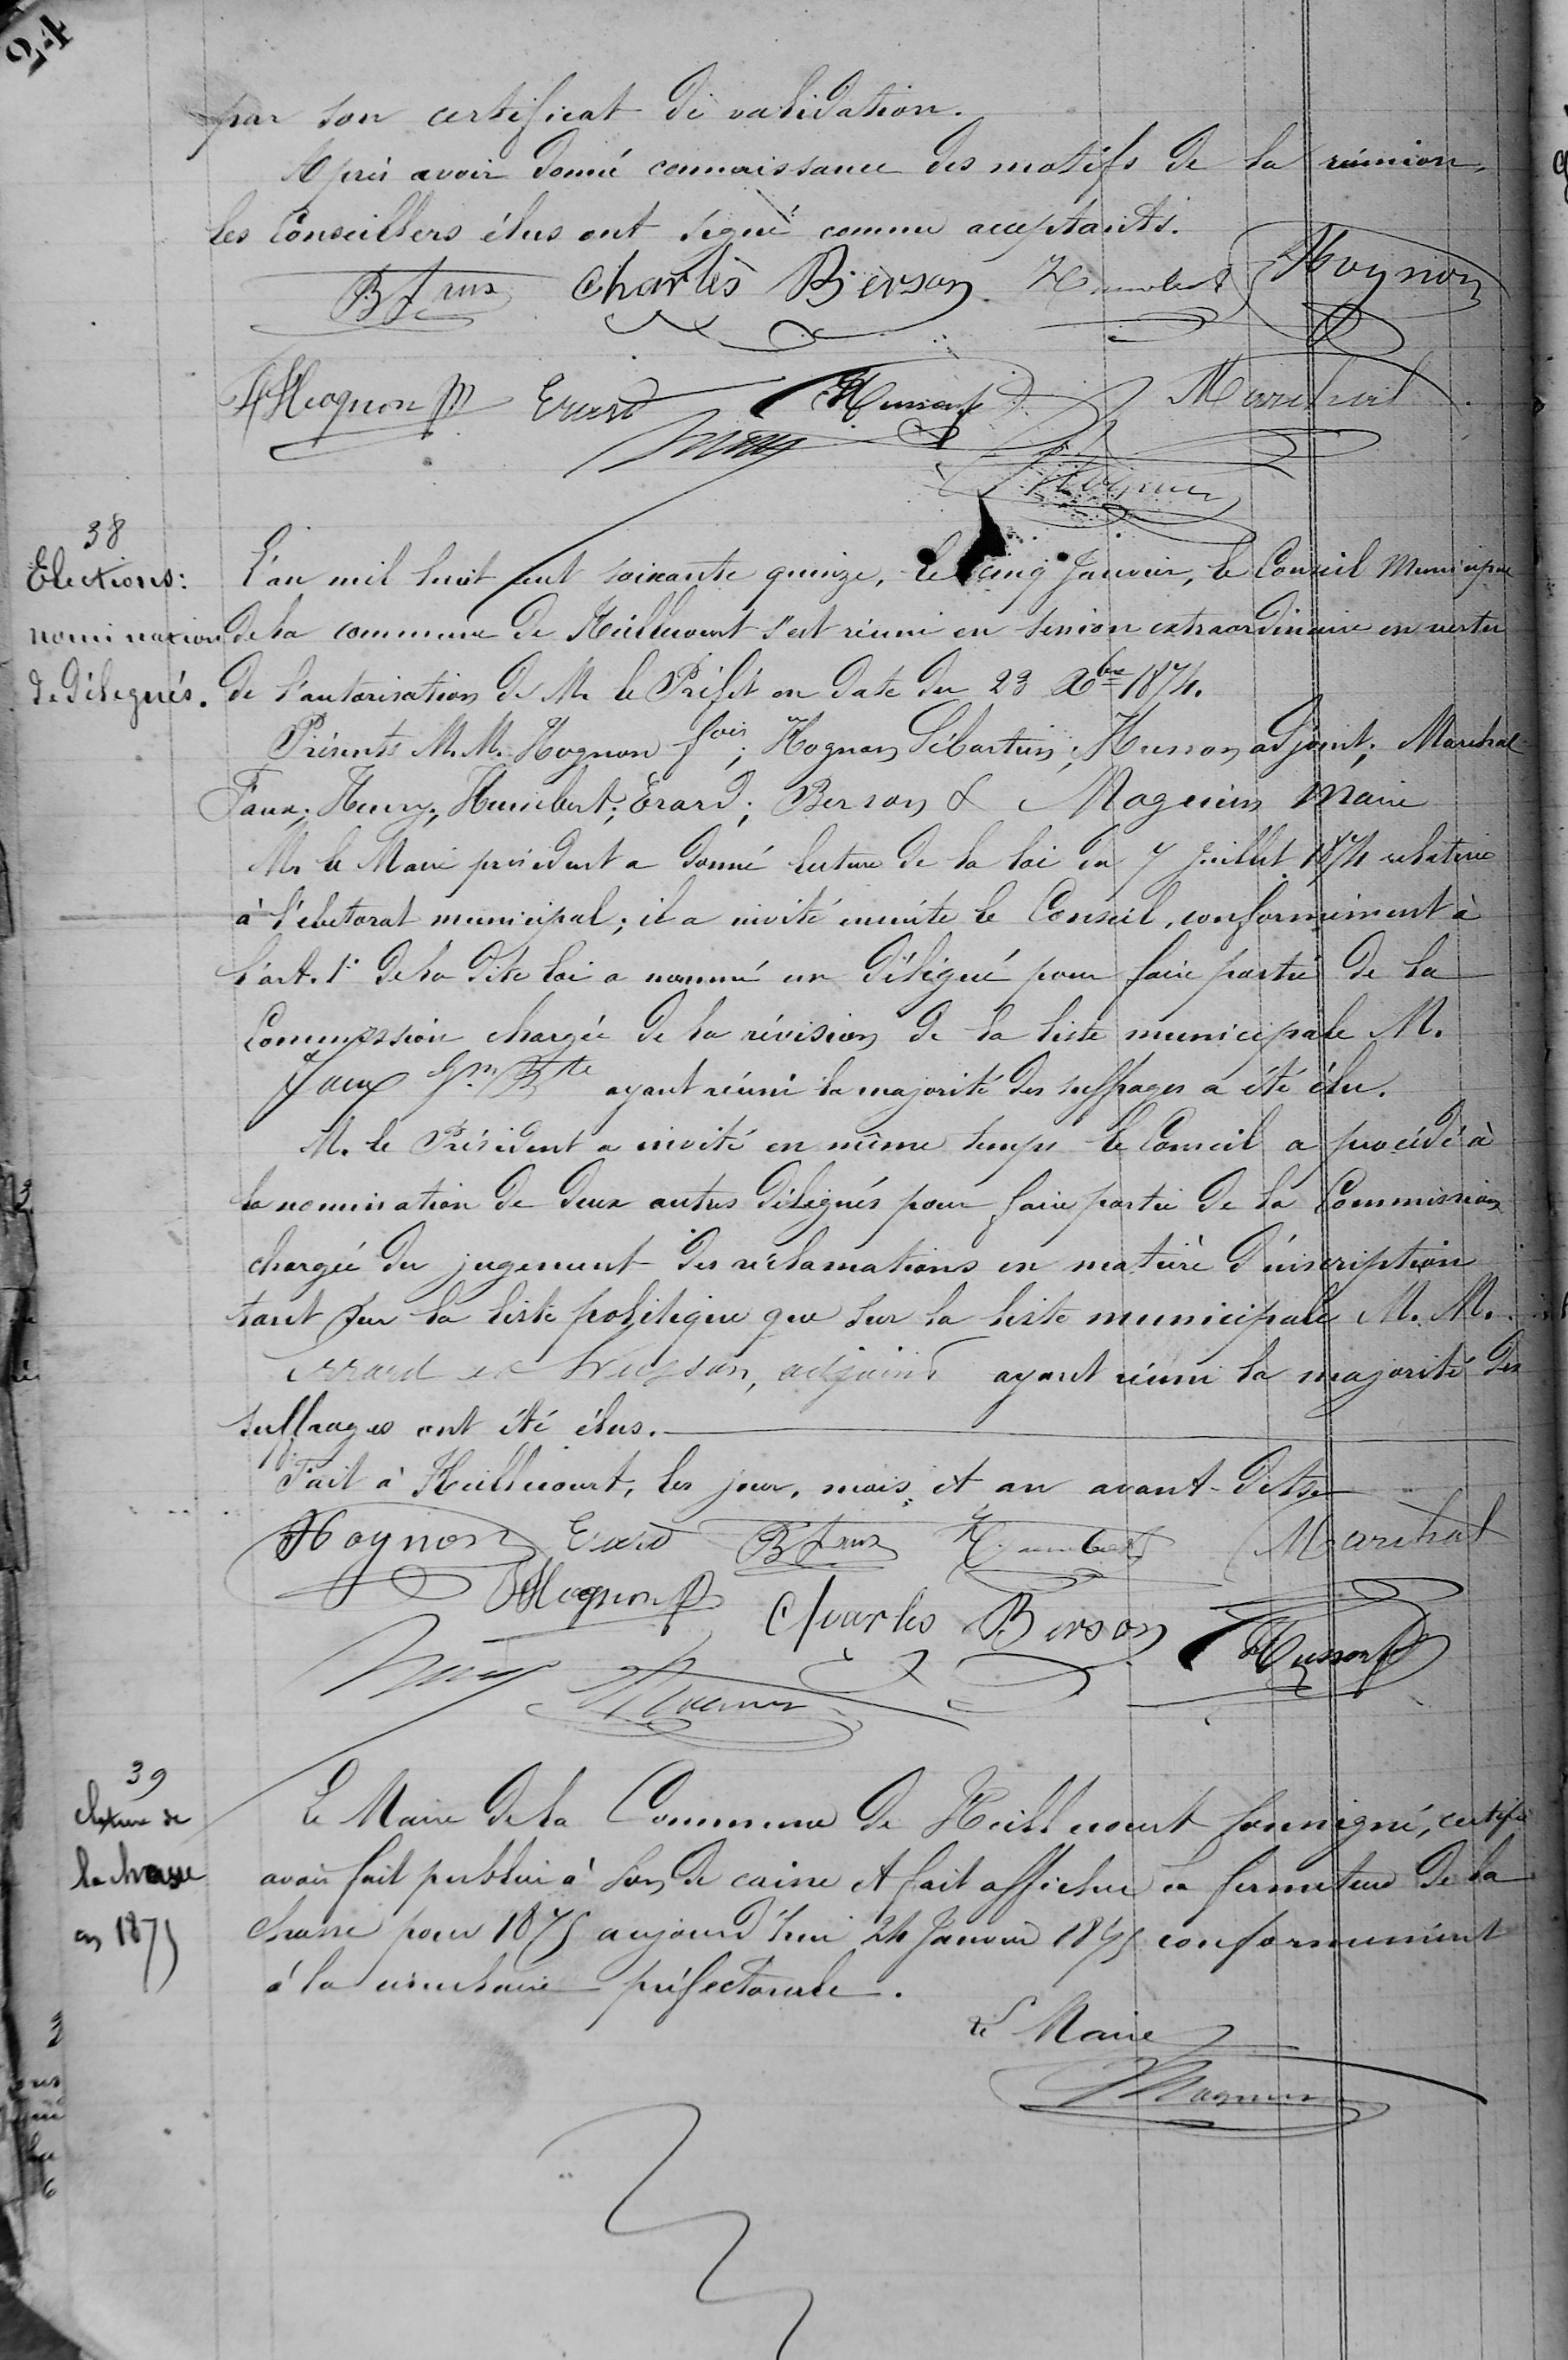 24
par son certificat de validation.
Après avoir donné connaissance des motifs de la réunion,
les Conseillers élus ont signé comme acceptants.
Bte Faux Charles Berson Humbert Hognon
Hognon Erard Husson Marchal
Henry
Magnin
38
Elections:
nomination
de délégués.
L'an mil huit cent soixante quinze, le cinq Janvier, le Conseil Municipal
de la commune de Heillecourt s'est réuni en session extraordinaire en vertu
de l'autorisation de M. le Préfet en date du 23 Xbre 1874.
Présents M.M. Hognon fois; Hognon Sébastien; Husson adjoint; Marchal
Faux; Henry; Humbert; Erard; Berson & Magnin Maire
M. le Maire président a donné lecture de la loi du 7 Juillet 1874 relative
à l'électorat municipal; il a invité ensuite le Conseil, conformément à
l'art. 1er de la dite loi a nommé un délégué pour faire partie de la
Commission chargée de la révision de la liste municipale M.
Faux Jn Bte ayant réuni la majorité des suffrages a été élu.
M. le Président a invité en même temps le Conseil a procédé à
la nomination de deux autres délégués pour faire partie de la Commission
chargée du jugement des réclamations en matière d'inscription
tant sur la liste politique que sur la liste municipale M.M.
Errard et Husson, adjoint ayant réuni la majorité des
suffrages ont été élus.
Fait à Heillecourt, les jour, mois et an avant-dits
Hognon Erard Bte Faux Humbert Marchal
Hognon Charles Berson Husson
Henry Magnin
39
clôture de
la chasse
en 1875
Le Maire de la Commune de Heillecourt soussigné, certifie
avoir fait publier à son de caisse et fait afficher la fermeture de la
chasse pour 1875 aujourd'hui 24 Janvier 1875 conformément
à la circulaire préfectorale.
Le Maire
Magnin